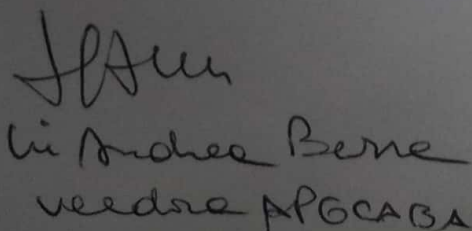 Lic Andrea Berra
veedora APGCABA